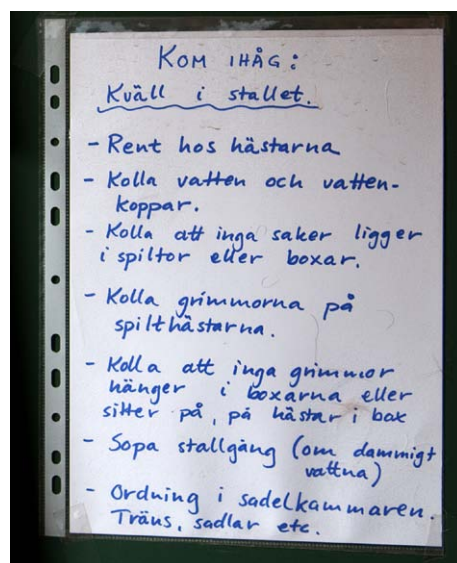 KOM IHÅG:
Kväll i stallet.
- Rent hos hästarna
- Kolla vatten och vatten-
koppar.
- Kolla att inga saker ligger
i spiltor eller boxar.
- Kolla grimmorna på
spilthästarna.
- Kolla att inga grimmor
hänger i boxarna eller
sitter på, på hästar i box
- Sopa stallgång (om dammigt
vattna)
- Ordning i sadelkammaren.
Träns, sadlar etc.